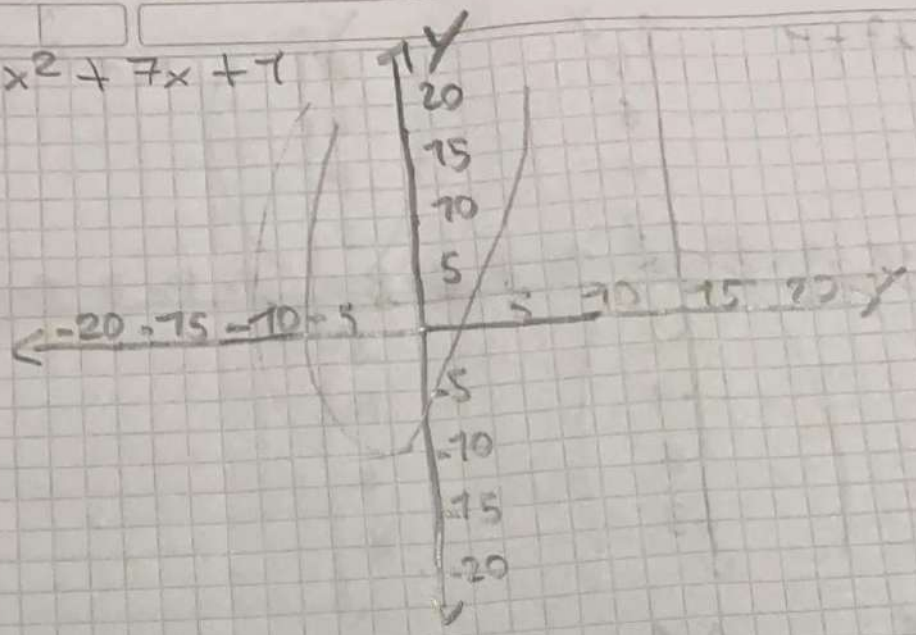 x² + 7x + 1
Y
20
15
10
5
-20 -15 -10 -5 5 10 15 20 Y
-5
-10
-15
-20